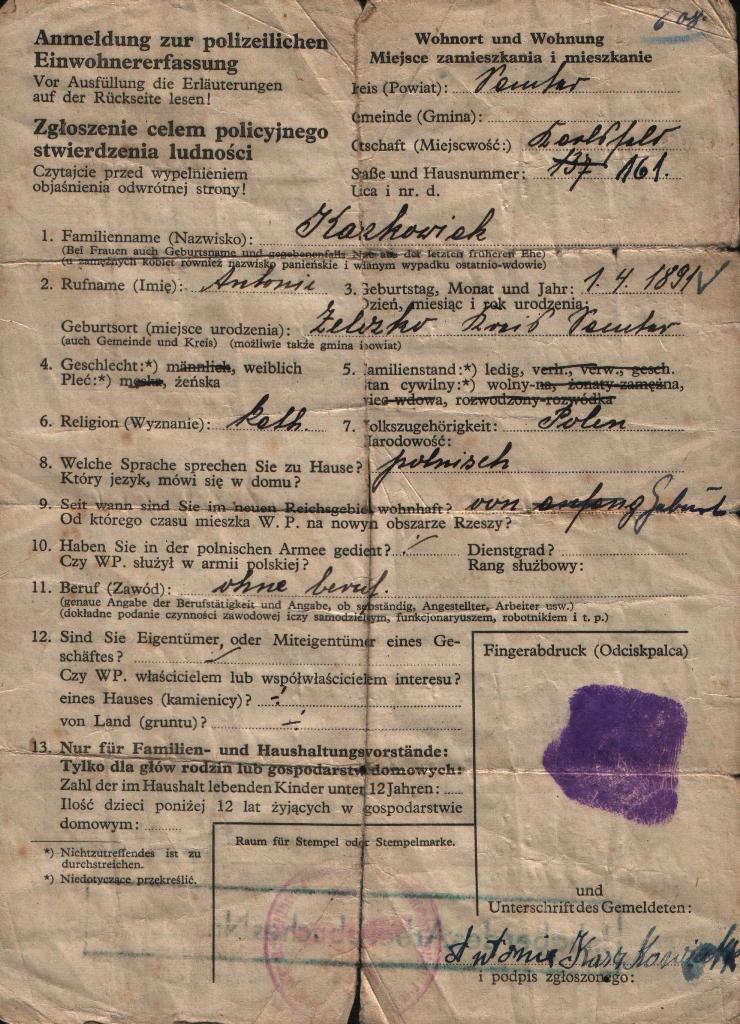 Anmeldung zur polizeilichen
Einwohnererfassung
Vor Ausfüllung die Erläuterungen
auf der Rückseite lesen!
Zgłoszenie celem policyjnego
stwierdzenia ludności
Czytajcie przed wypełnieniem
objaśnienia odwrótnej strony!
Wohnort und Wohnung
Miejsce zamieszkania i mieszkanie
reis (Powiat): Samter
emeinde (Gmina):
tschaft (Miejscwość:) Karlsfeld
Saße und Hausnummer: 137 161.
Uica i nr. d.
1. Familienname (Nazwisko):
(Bei Frauen auch Geburtsname und gegebenenfalls Name aus der letzten früheren Ehe)
(u zamężnych kobiet również nazwisko panieńskie i w'anym wypadku ostatnio-wdowie)
2. Rufname (Imię): Antonie 3. Geburtstag, Monat und Jahr: 1. 4. 1891
Dzień, miesiąc i rok urodzenia:
Geburtsort (miejsce urodzenia): Kreis Samter
(auch Gemeinde und Kreis) (możliwie także gmina i powiat)
4. Geschlecht:*) männlich, weiblich 5. amilienstand:*) ledig, verh., verw., gesch.
Pleć:*) męska, żeńska tan cywilny:*) wolny-na, żonaty-zamężna,
wiec-wdowa, rozwodzony-rozwódka
6. Religion (Wyznanie): kath. 7. olkszugehörigkeit: Polen
Narodowość:
8. Welche Sprache sprechen Sie zu Hause? polnisch
Który język, mówi się w domu?
9. Seit wann sind Sie im neuen Reichsgebiet wohnhaft? von anfang Geburt
Od którego czasu mieszka W. P. na nowyn obszarze Rzeszy?
10. Haben Sie in der polnischen Armee gedient? Dienstgrad?
Czy WP. służył w armii polskiej? Rang służbowy:
11. Beruf (Zawód): ohne beruf.
(genaue Angabe der Berufstätigkeit und Angabe, ob selbständig, Angestellter, Arbeiter usw.)
(dokładne podanie czynności zawodowej iczy samodzielnym, funkcjonaryuszem, robotnikiem i t. p.)
12. Sind Sie Eigentümer, oder Miteigentümer eines Ge-
schäftes?
Czy WP. właścicielem lub współwłaścicielem interesu?
eines Hauses (kamienicy)?
von Land (gruntu)?
13. Nur für Familien- und Haushaltungsvorstände:
Tylko dla głów rodzin lub gospodarstw domowych:
Zahl der im Haushalt lebenden Kinder unter 12 Jahren:
Ilość dzieci poniżej 12 lat żyjących w gospodarstwie
domowym:
*) Nichtzutreffendes ist zu
durchstreichen.
*) Niedotyczące przekreślić.
Raum für Stempel oder Stempelmarke.
Fingerabdruck (Odciskpalca)
und
Unterschrift des Gemeldeten:
Antonie
i podpis zgłoszonego: